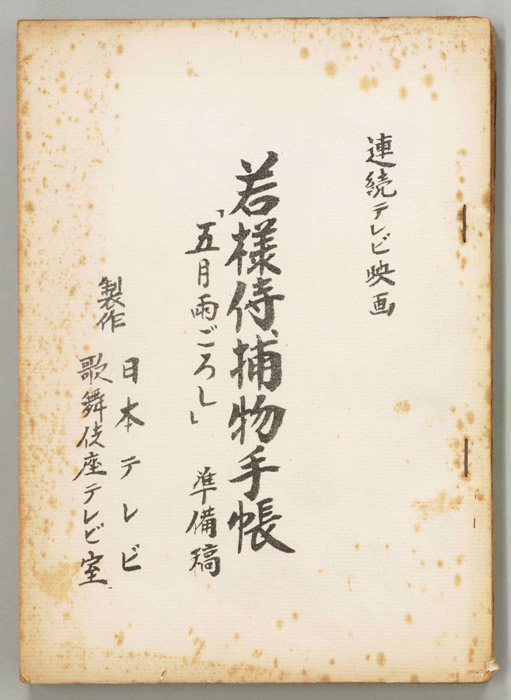 連続テレビ映画
若様侍捕物手帳
「五月雨ごろし」 準備稿
製作 日本テレビ
歌舞伎座テレビ室